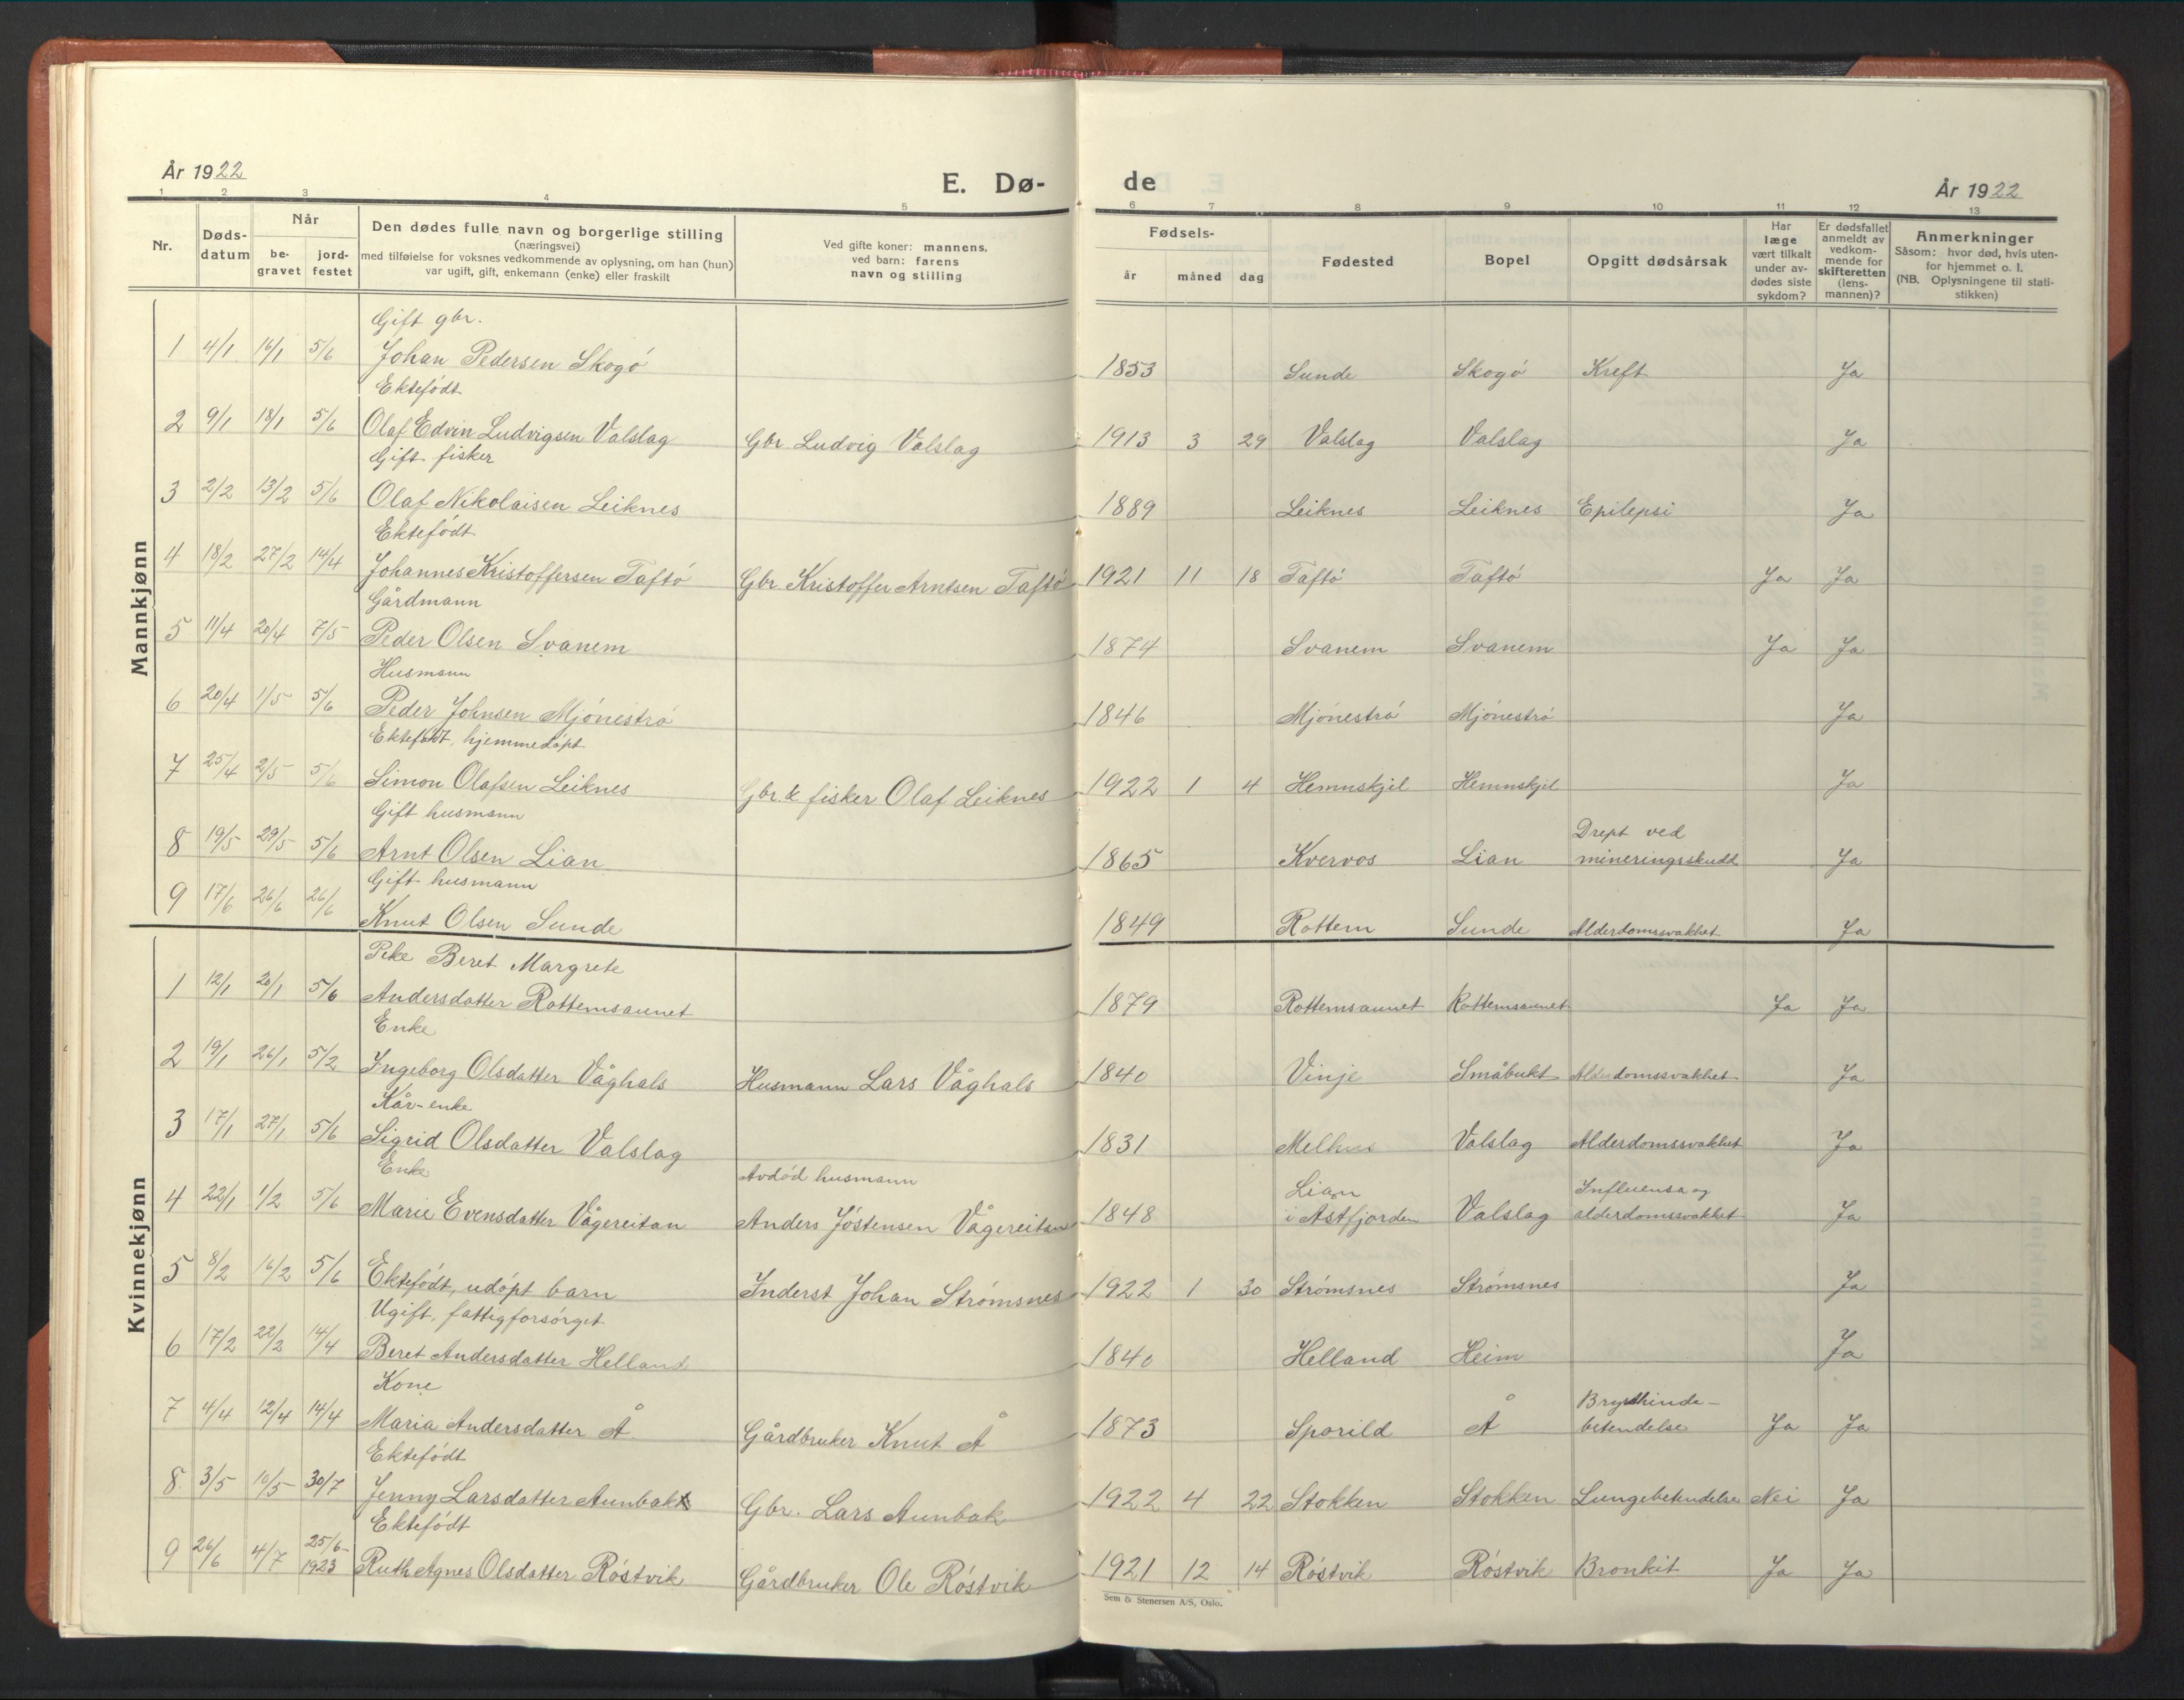 År 1922
E. Dø-
de
År 1922
1 2 3 4 5 6 7 8 9 10 11 12 13
Nr.
Døds-
datum
Når
be-
gravet
jord-
festet
Den dødes fulle navn og borgerlige stilling
(næringsvei)
med tilføielse for voksnes vedkommende av oplysning, om han (hun)
var ugift, gift, enkemann (enke) eller fraskilt
Ved gifte koner: mannens,
ved barn: farens
navn og stilling
Fødsels-
år måned dag
Fødested
Bopel
Opgitt dødsårsak
Har
læge
vært tilkalt
under av-
dødes siste
sykdom?
Er dødsfallet
anmeldt av
vedkom-
mende for
skifteretten
(lens-
mannen)?
Anmerkninger
Såsom: hvor død, hvis uten-
for hjemmet o. l.
(NB. Oplysningene til stati-
stikken)
Mannkjønn
Gift gbr.
1 4/1 16/1 5/6 Johan Pedersen Skogø 1853 Sunde Skogø Kreft Ja
Ektefødt
2 9/1 18/1 5/6 Olaf Edvin Ludvigsen Valslag Gbr. Ludvig Valslag 1913 3 29 Valslag Valslag Ja
Gift fisker
3 2/2 13/2 5/6 Olaf Nikolaisen Leiknes 1889 Leiknes Leiknes Epilepsi Ja
Ektefødt
4 18/2 27/2 14/4 Johannes Kristoffersen Taftø Gbr. Kristoffer Arntsen Taftø 1921 11 18 Taftø Taftø Ja Ja
Gårdmann
5 11/4 20/4 7/5 Peder Olsen Svanem 1874 Svanem Svanem Ja Ja
Husmann
6 20/4 1/5 5/6 Peder Johnsen Mjønestrø 1846 Mjønestrø Mjønestrø Ja
Ektefødt, hjemmedøpt
7 25/4 2/5 5/6 Simon Olafsen Leiknes Gbr. & fisker Olaf Leiknes 1922 1 4 Hemnskjil Hemnskjil Ja
Gift husmann
Drept ved
8 19/5 29/5 5/6 Arnt Olsen Lian 1865 Kvervos Lian mineringsskudd Ja
Gift husmann
9 17/6 26/6 26/6 Knut Olsen Sunde 1849 Rottem Sunde Alderdomssvakhet Ja
Kvinnekjønn
Pike Beret Margrete
1 12/1 20/1 5/6 Andersdatter Rottemsaunet 1879 Rottemsaunet Rottemsaunet Ja Ja
Enke
2 19/1 26/1 5/2 Ingeborg Olsdatter Våghals Husmann Lars Våghals 1840 Vinje Småbukt Alderdomssvakhet Ja
Kår-enke
3 17/1 27/1 5/6 Sigrid Olsdatter Valslag 1831 Melhus Valslag Alderdomssvakhet Ja
Enke Avdød husmann Lian Influensa og
4 22/1 1/2 5/6 Marie Evensdatter Vågereitan Anders Jøstensen Vågereitan 1848 i Astfjorden Valslag alderdomssvakhet Ja
5 8/2 16/2 5/6 Ektefødt, udøpt barn Inderst Johan Strømsnes 1922 1 30 Strømsnes Strømsnes Ja
Ugift, fattigforsørget
6 17/2 22/2 14/4 Beret Andersdatter Helland 1840 Helland Heim Ja
Kone Brysthinde-
7 4/4 12/4 14/4 Maria Andersdatter Å Gårdbruker Knut Å 1873 Sporild Å betendelse Ja Ja
Ektefødt
8 3/5 10/5 30/7 Jenny Larsdatter Aunbak Gbr. Lars Aunbak 1922 4 22 Stokken Stokken Lungebetendelse Nei Ja
Ektefødt
25/6-
9 26/6 4/7 1923 Ruth Agnes Olsdatter Røstvik Gårdbruker Ole Røstvik 1921 12 14 Røstvik Røstvik Bronkit Ja Ja
Sem & Stenersen A/S, Oslo.